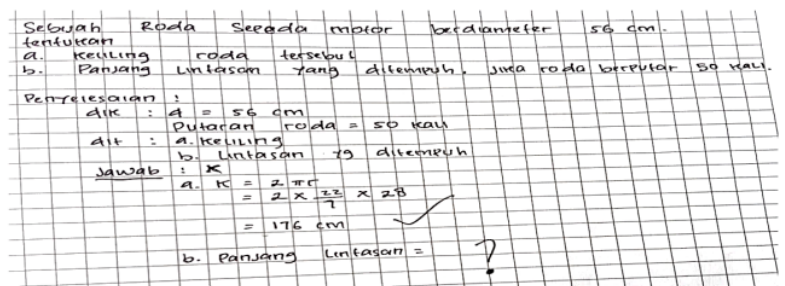 Sebuah Roda Sepeda motor berdiameter 56 cm.
tentukan
a. keliling roda tersebut
b. Panjang Lintasan yang ditempuh, Jika roda berputar 50 kali.
Penyelesaian :
dik : d = 56 cm
Putaran roda = 50 kali
dit : a. keliling
b. Lintasan yg ditempuh
Jawab : K
a. K = 2 πr
= 2 x 22/7 x 28
= 176 cm ✓
b. Panjang Lintasan = ?